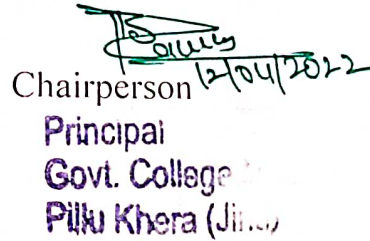 12/04/2022
Chairperson
Principal
Govt. College
Pillu Khera